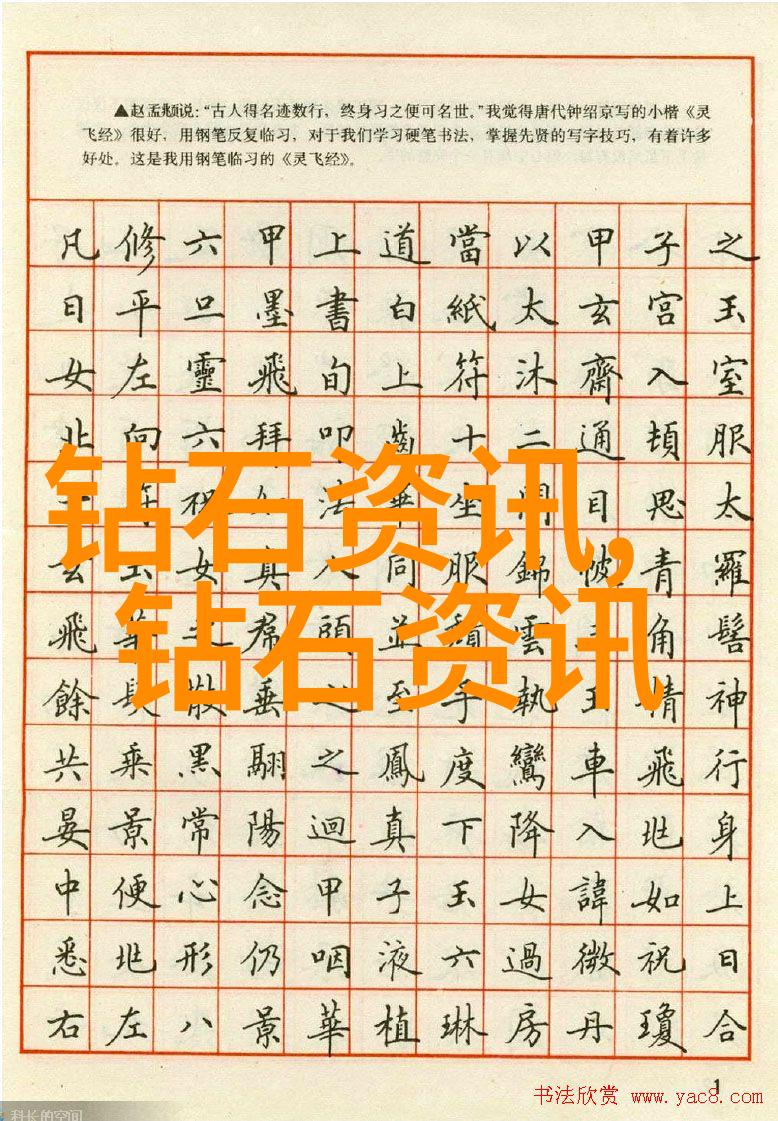 ▲赵孟頫说：“古人得名迹数行，终身习之便可名世。”我觉得唐代钟绍京写的小楷《灵
飞经》很好，用钢笔反复临习，对于我们学习硬笔书法，掌握先贤的写字技巧，有着许多
好处。这是我用钢笔临习的《灵飞经》。
凡修六甲上道當以甲子之
日平旦墨書白紙太玄宮玉
女左靈飛旬上符沐齋入室
北向六拜叩齒十二通頓服
符祝如法畢坐閉目思太
玄玉女真人同服錦帔青羅
飛華之帬頭並頹雲三角髻
餘髮散垂之至手執玉精神
共乘黑翮之鳳度鸞車飛行
晏景常陽迴真下降入兆身
中便心念甲子玉女諱如上
悉兆形仍咽液六過微祝曰
右左八景華植琳房丹瓊合
钻石资讯,
钻石资讯
1
书法欣赏 www.yac8.com
科长的空间